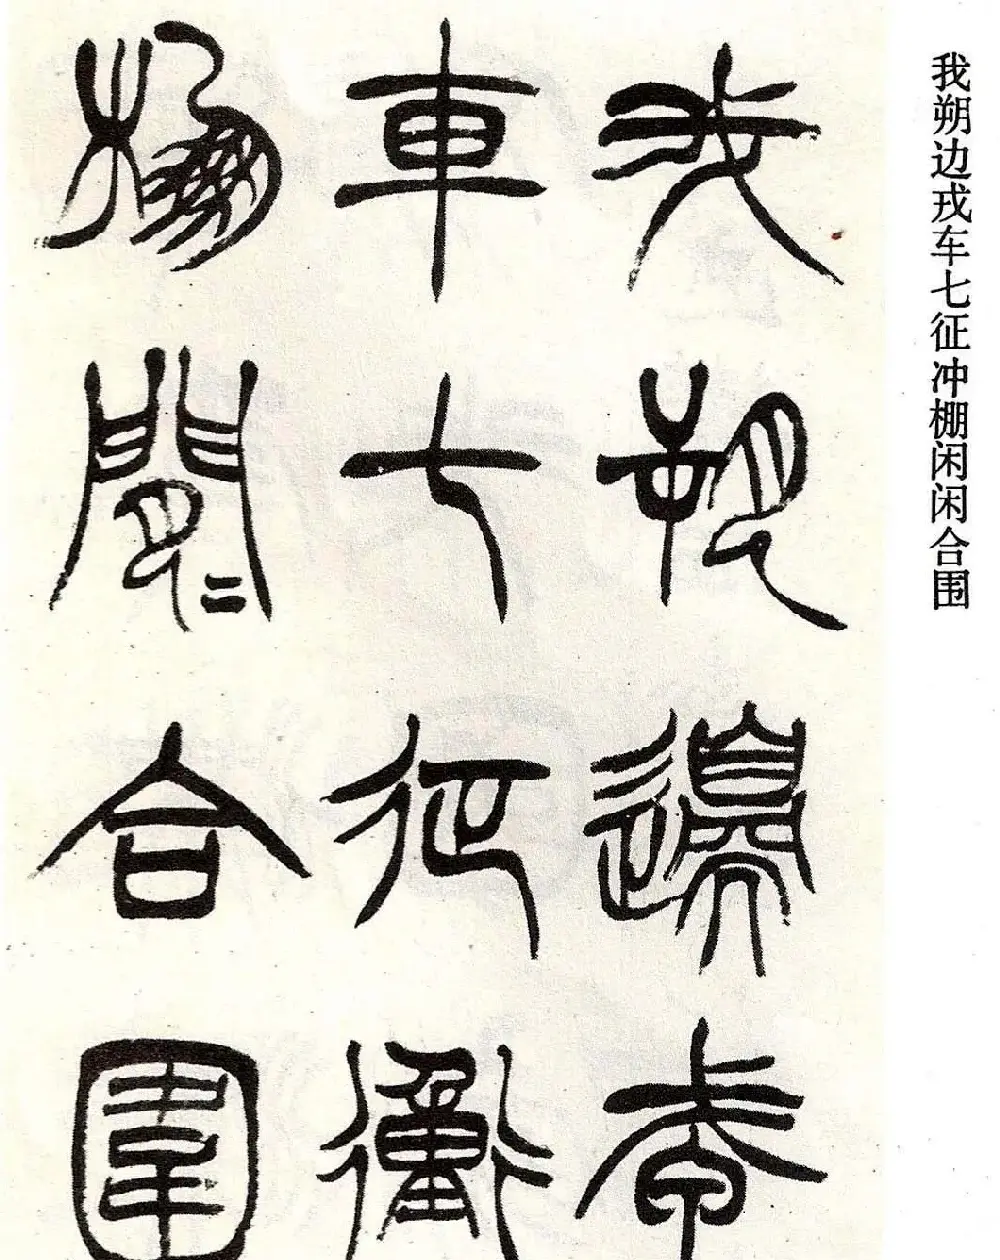 我朔边戎车七征冲棚闲闲合围
我朔邊戎
車七征衝
棚閒〻合圍